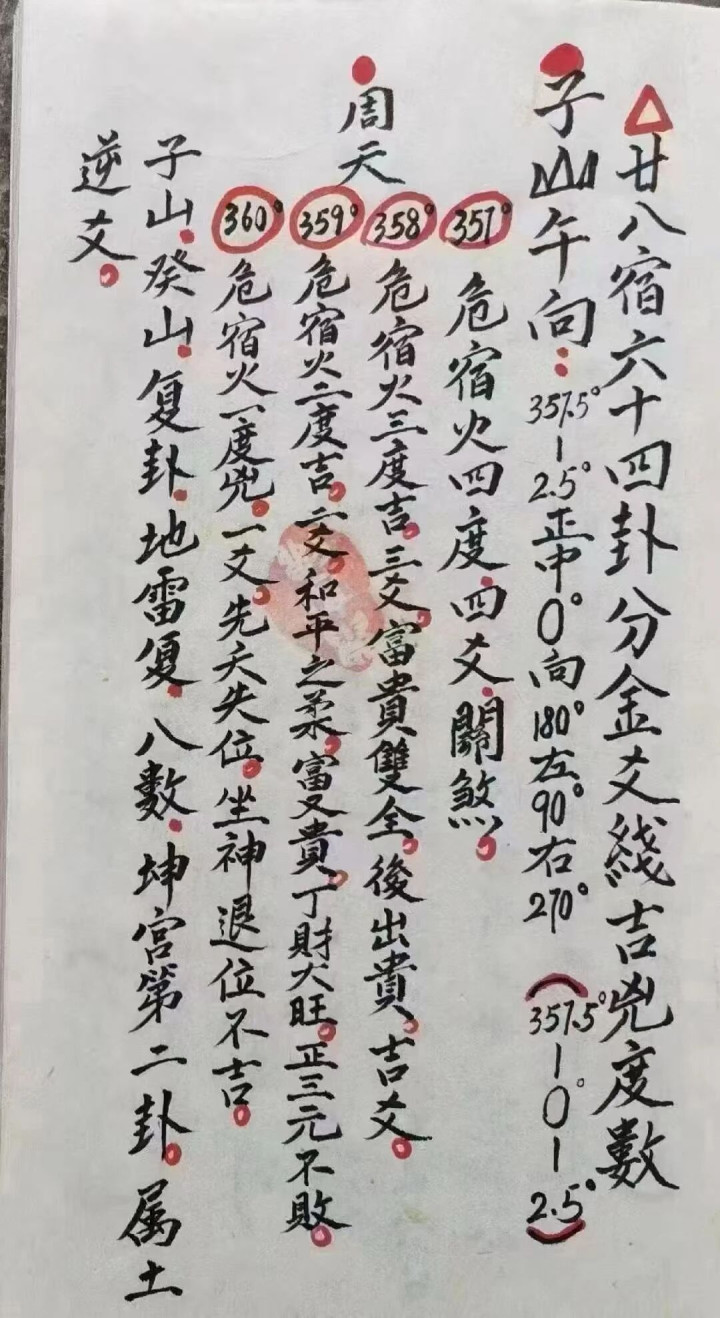 △廿八宿六十四卦分金爻綫吉兇度數
子山午向:357.5°-2.5°正中0°向180°左90°右270°(357.5°-0°-2.5°)
周天
357°危宿火四度.四爻.關煞。
358°危宿火三度吉。三爻。富貴雙全。後出貴。吉爻。
359°危宿火二度吉。二爻。和平之柔。富又貴。丁財大旺。正三元不敗。
360°危宿火一度兇。一爻。先夭失位。坐神退位不吉。
子山.癸山.复卦.地雷复.八數.坤宫第二卦。属土
逆爻。